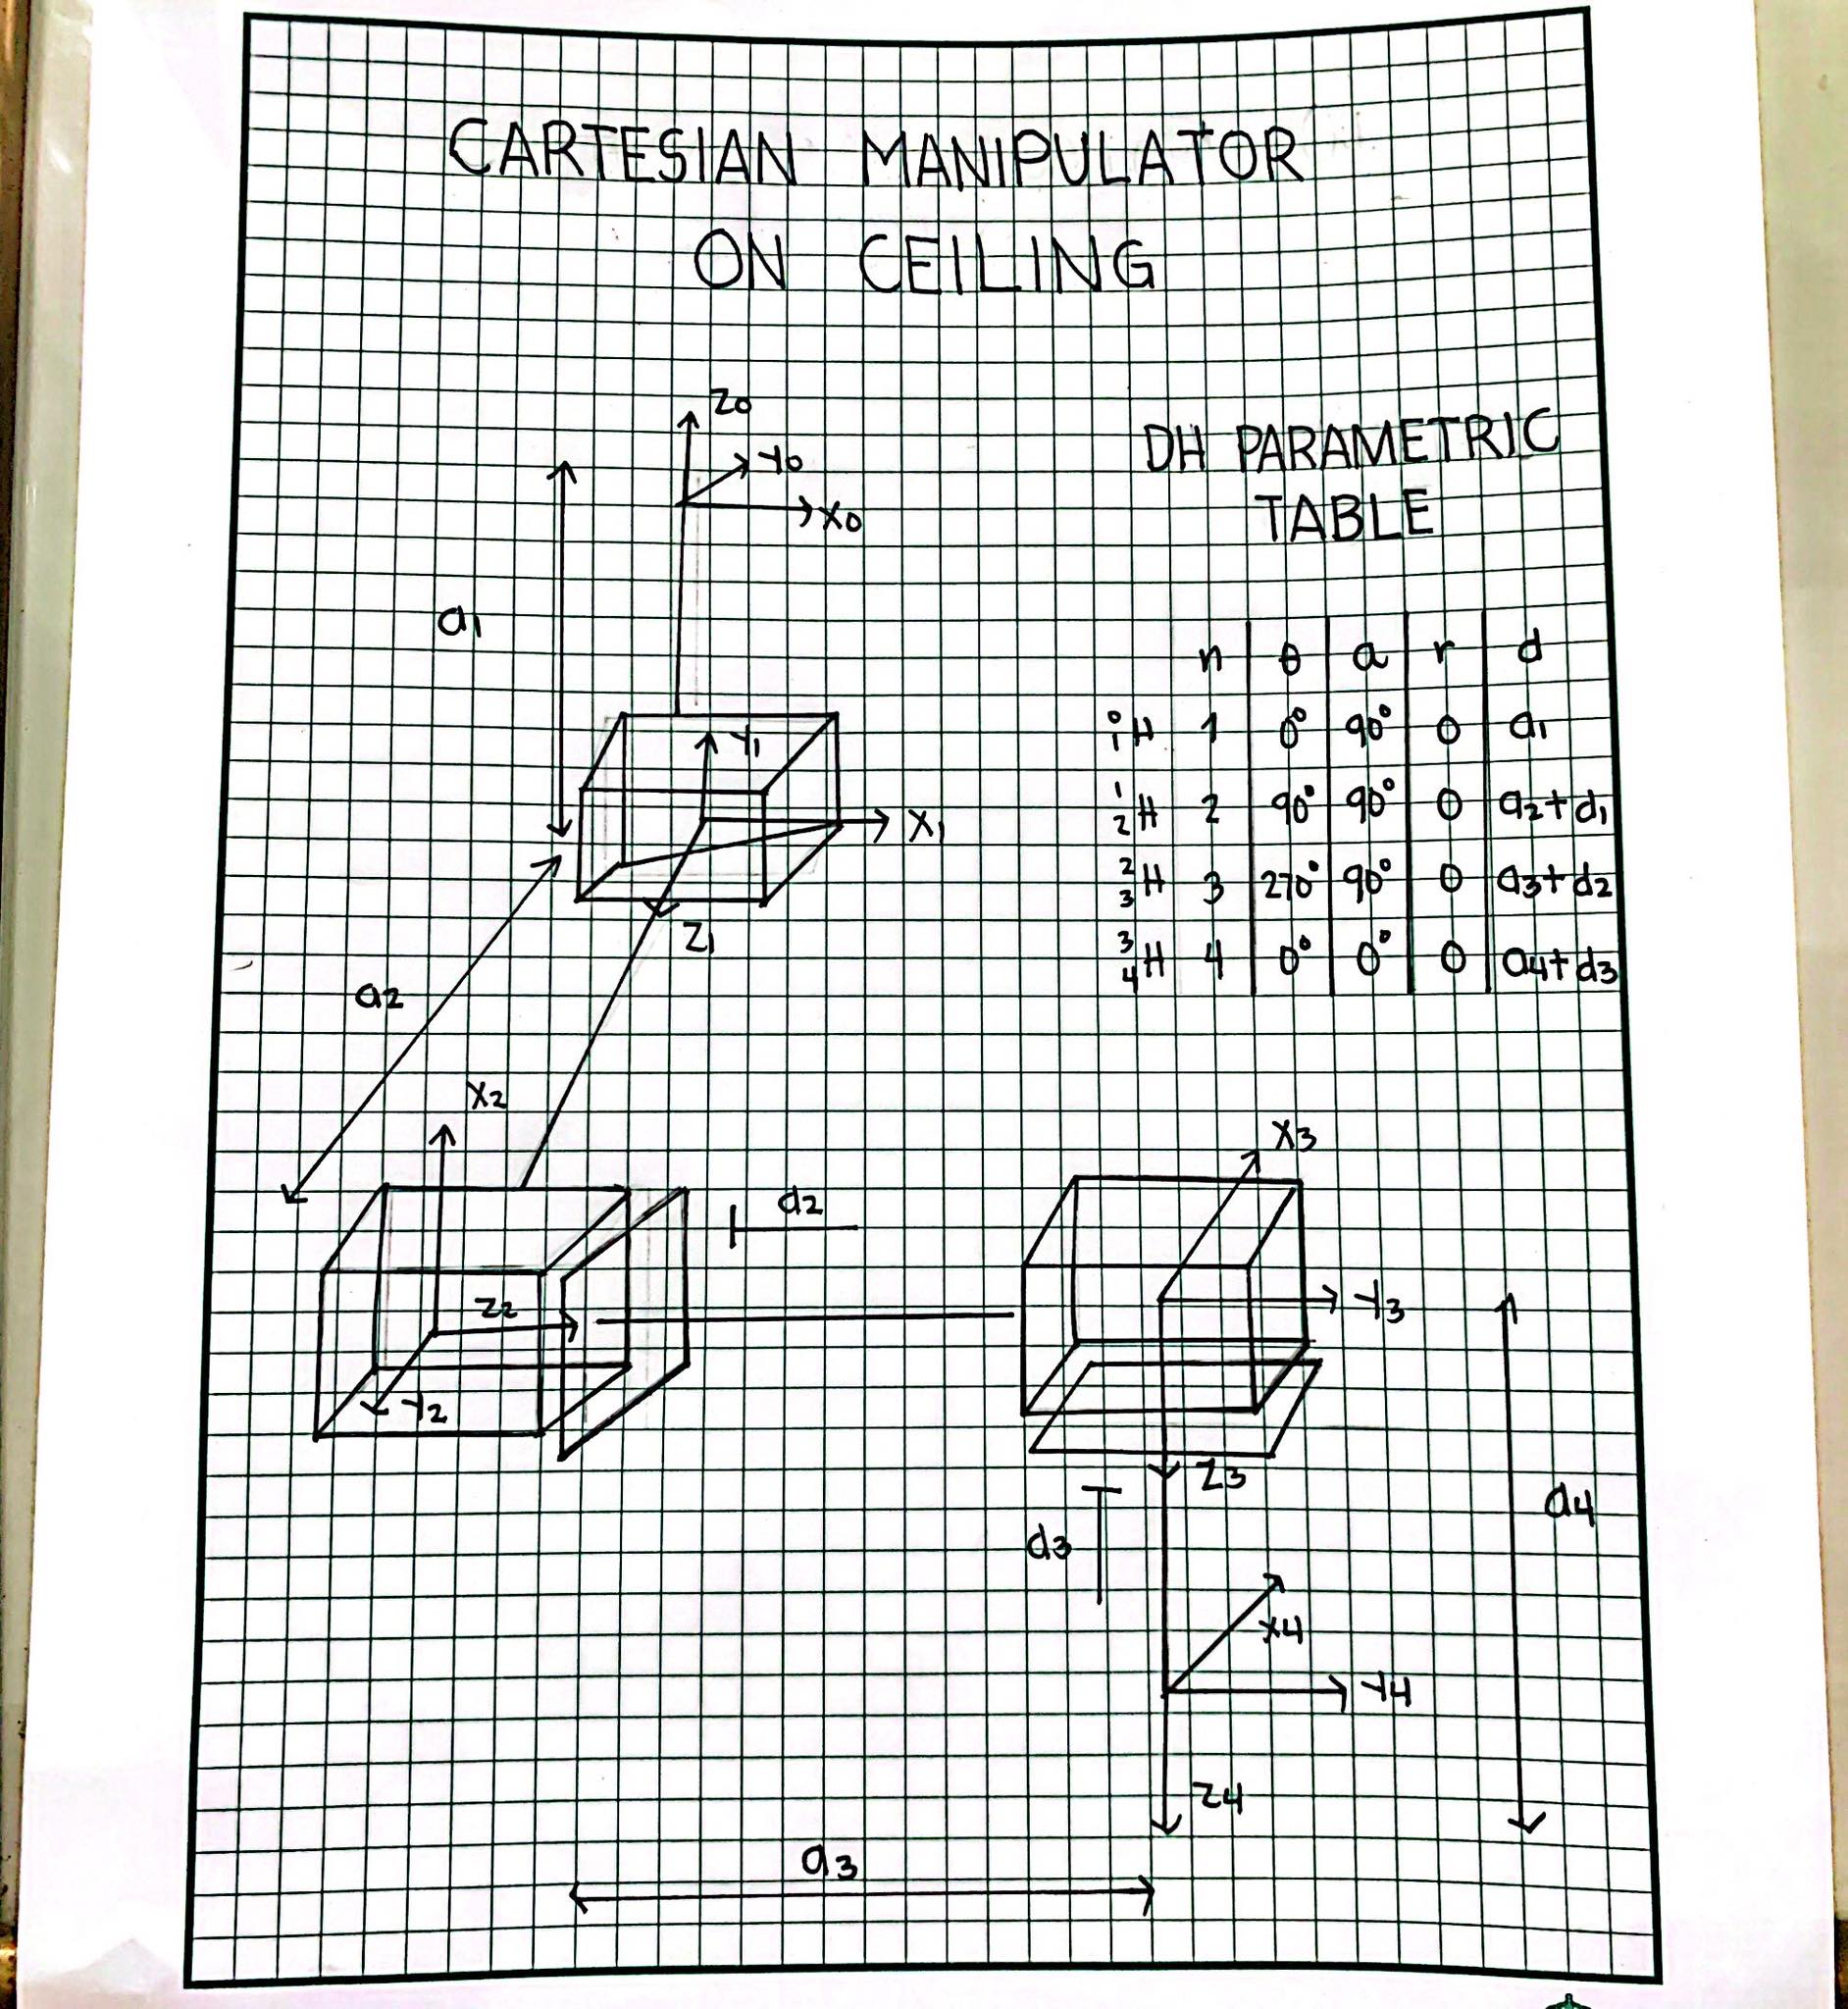 CARTESIAN MANIPULATOR
ON CEILING
Z0
Y0
X0
DH PARAMETRIC
TABLE
a1
n θ α r d
0 1 H 1 0° 90° 0 a1
1 2 H 2 90° 90° 0 a2+d1
2 3 H 3 270° 90° 0 a3+d2
3 4 H 4 0° 0° 0 a4+d3
Y1
X1
Z1
a2
X2
X3
d2
Z2
Y3
Y2
Z3
a4
d3
X4
Y4
Z4
a3